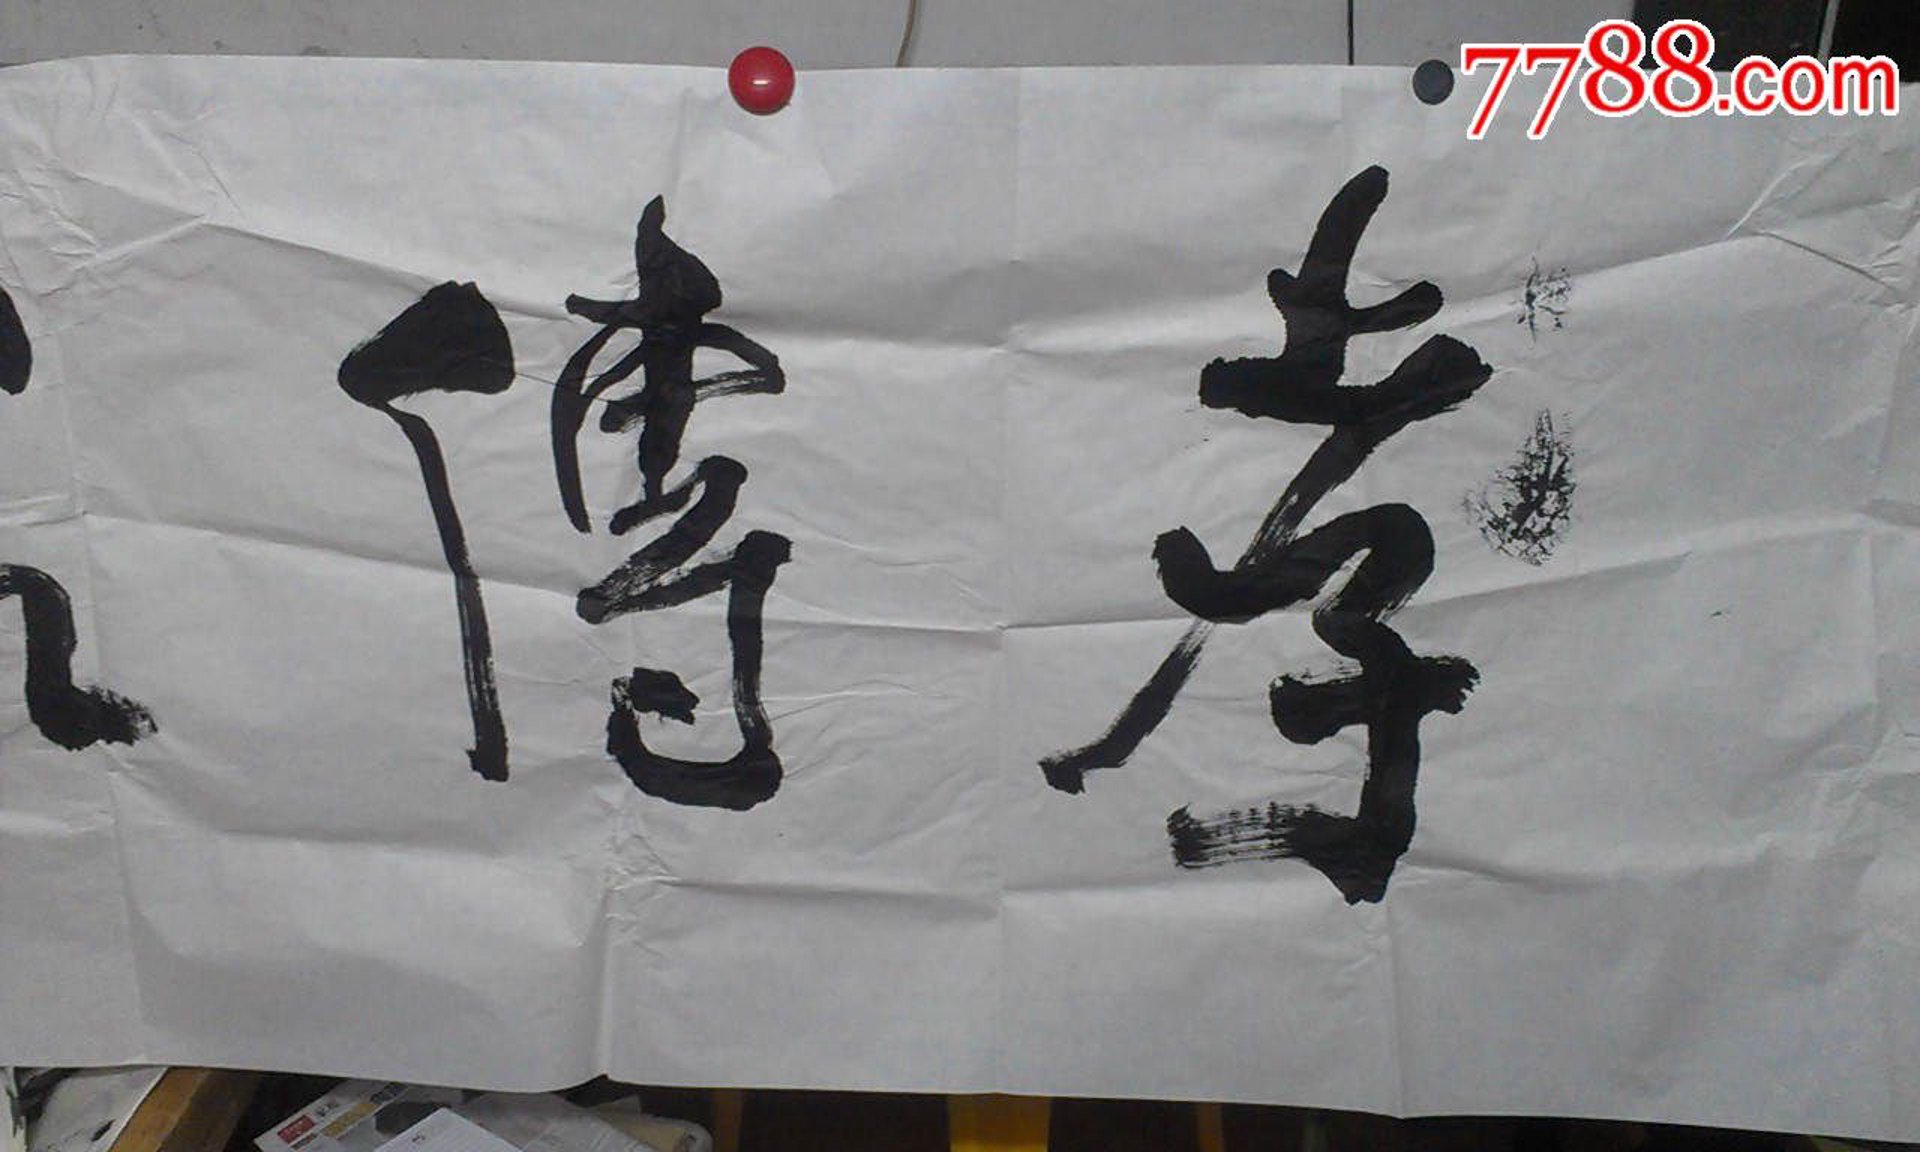 7788.com
孝傳